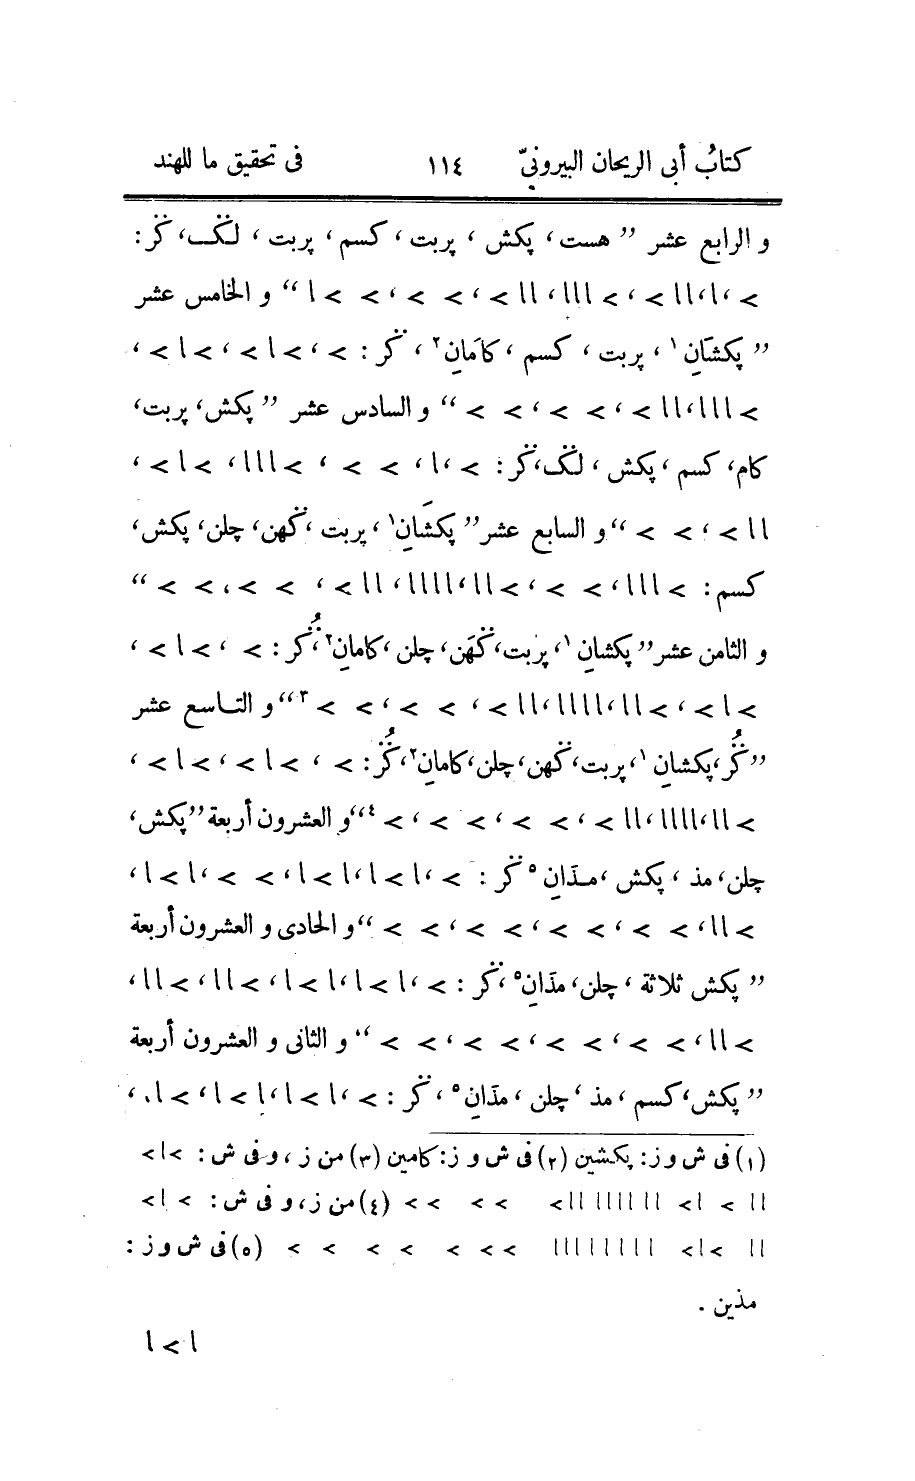 كتابُ أبى الريحان البيرونىّ ١١٤ فى تحقيق ما للهند
و الرابع عشر ” هست، پكش ، پربت، كسم، پربت ، لگ، گر:
> ،ا،اا> ،> ااا، اا> ،> > ،> >ا “ و الخامس عشر
” پكشَانِ ١ ، پربت ، كسم ،كامَانِ ٢ ، گر : > ،>ا> ،>ا> ،
> ااا،اا> ،> > ،> > “ و السادس عشر ” پكش، پربت،
كام، كسم ، پكش ، لگ،گر: > ،ا، > > ، >ااا، >ا> ،
اا> ،> > “و السابع عشر” پكشَانِ ١ ، پربت ،گهن، چلن، پكش،
كسم: >ااا، > > ،>اا،اااا، اا> ، > > ،> > “
و الثامن عشر” پكشانِ ١، پربت، گهَن، چلن ،كامانِ ٢،گُر : > ،>ا> ،
>ا> ،>اا،اااا،اا> ، > > ،> > ٣“و التاسع عشر
”گُر،پكشانِ ١، پربت، گهن، چلن،كامانِ ٢،گُر: > ، >ا> ،>ا> ،
>اا،اااا،اا> ،> > ،> > ،> ٤“و العشرون أربعة”پكش،
چلن، مذ ، پكش ،مذَانِ ٥ گر : > ،ا>ا،ا>ا، > > ،ا>ا،
>اا،> > ،> > ،> > ،> > “و الحادى و العشرون أربعة
” پكش ثلاثة ، چلن، مذَانِ ٥ ،گر : > ،ا>ا،ا>ا، >اا، >اا،
>اا، > > ،> > ،> > ،> > “ و الثانى و العشرون أربعة
” پكش،كسم ، مذ ، چلن ، مذَانِ ٥ ، گر : > ،ا>ا،ا>ا، >ا، ،
(١) فى ش و ز: پكشين (٢) فى ش و ز: كامين (٣) من ز ، و فى ش : >ا>
اا > ا> اا اااااا اا> > > > > (٤) من ز، و فى ش : >ا>
اا >ا> اااااااا > > > > > > > (٥) فى ش و ز :
مذين .
ا>ا